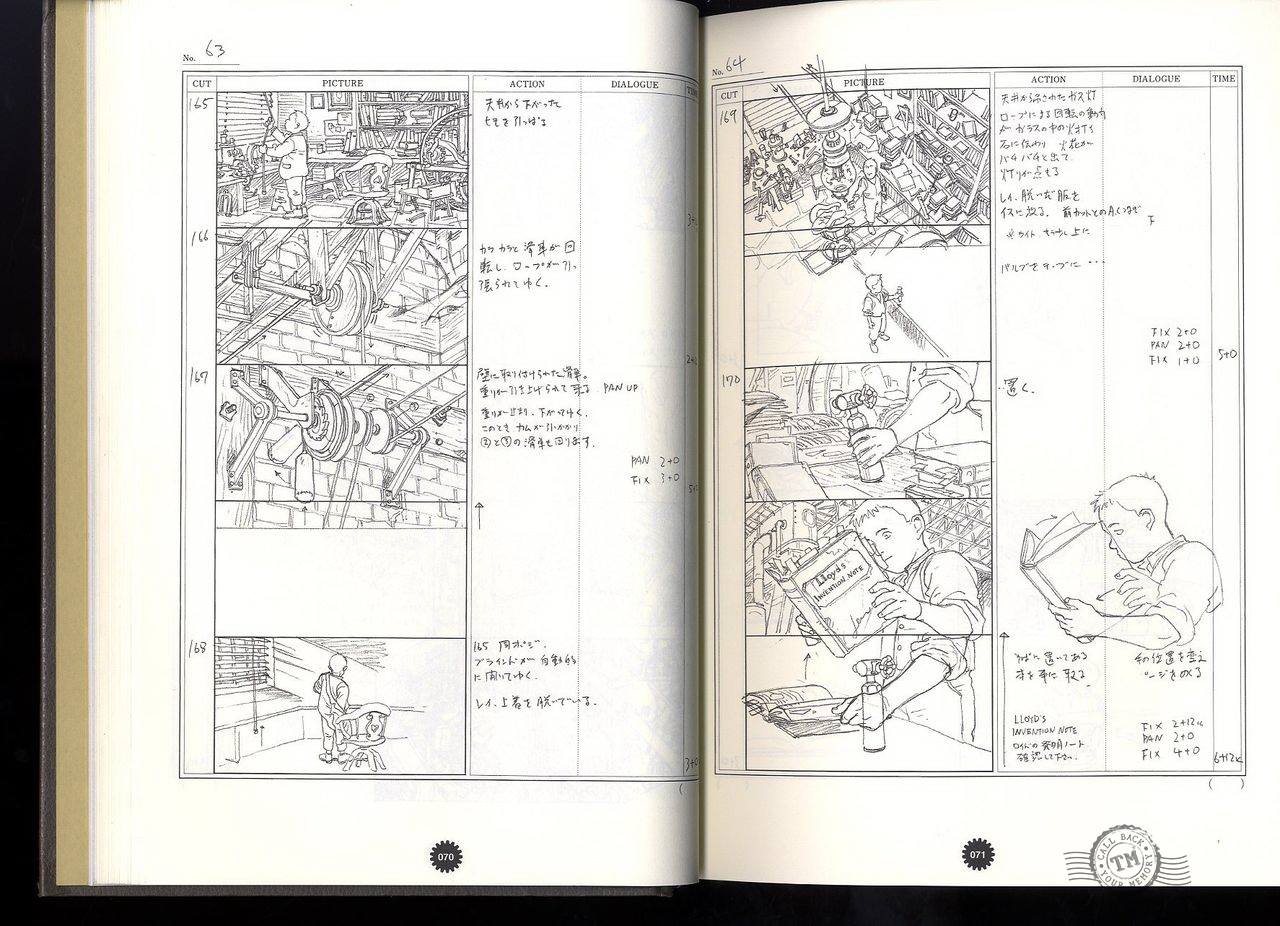 No. 63
CUT PICTURE ACTION DIALOGUE TIME
165
天井から下がった
ヒモを引っぱる
3+
166
カラカラと滑車が回
転し、ロープが引っ
張られてゆく。
2+
167
壁に取り付けられた滑車。
重りが引き上げられて来る PAN UP
重りが止まり、下がってゆく。
このとき カムが引っかかり
②と③の滑車も回ります。
PAN 2+0
FIX 3+0
5+
168
165 同ポジ.
ブラインドが自動的
に開いてゆく。
レイ、上着を脱いでいる。
3+0
(
070
No. 64
CUT PICTURE ACTION DIALOGUE TIME
169
天井から吊された ガス灯
ロープによる回転の動力
が ガラスの中の火打ち
石に伝わり 火花が
バチバチと出て
灯りが点もる
レイ、脱いだ服を
イスに放る。
バルブをテーブに …
FIX 2+0
PAN 2+0
FIX 1+0
5+0
170
置く。
Lloyd's
INVENTION NOTE
そばに置いてある
本を手に取る
手の位置を変え
ページをめくる
LLOYD'S
INVENTION NOTE
ロイドの発明ノート
確認して下さい.
FIX 2+12K
PAN 2+0
FIX 4+0
6+12K
( )
071
CALL BACK
TM
YOUR MEMORY